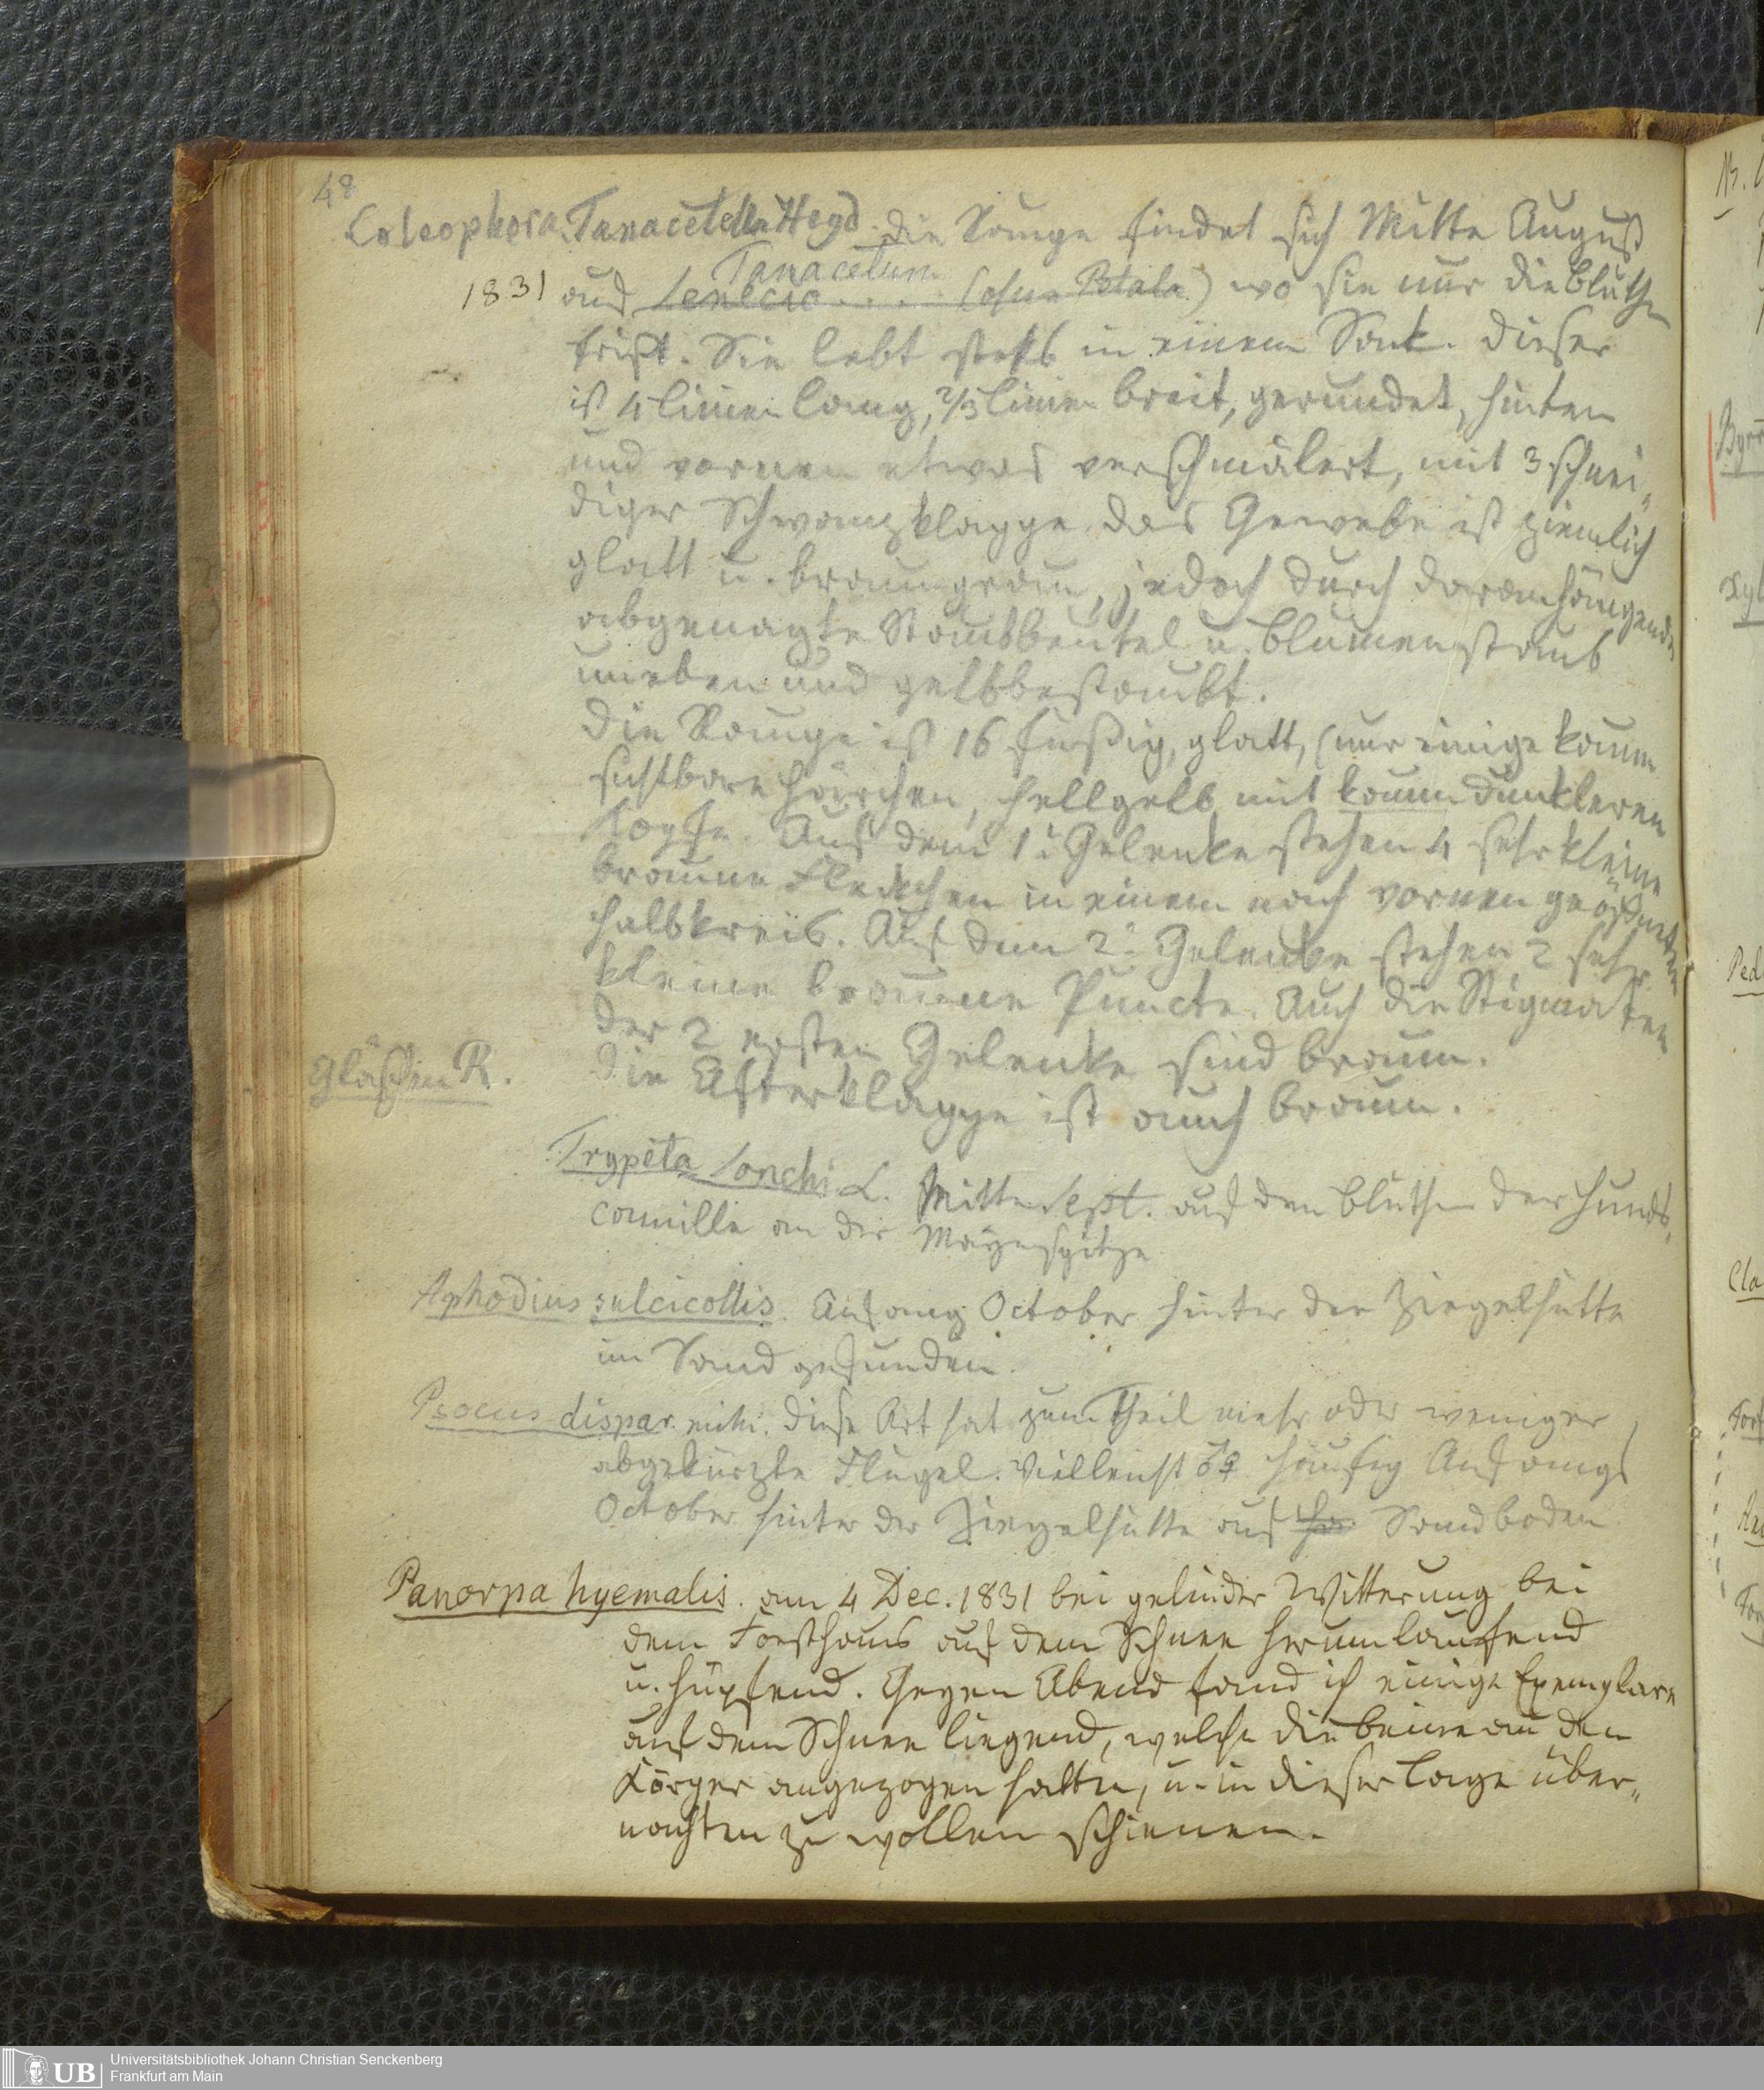 48
Coleophora Tanacetella Heyd. die Raupe findet sich Mitte August
Tanacetum
1831 auf Senecio . . . . (ohne Petala) wo sie nur die Blüthen
frißt. Sie lebt stets in einem Sack. Dieser
ist 4 Linien lang, 2/3 Linien breit, gerundet, hinten
und vornen etwas verschmälert, mit 3 schnei„
diger Schwanzklappe das Gewebe ist ziemlich
glatt u. braungrau, jedoch durch daranhängende
abgenagte Staubbeutel u. Blumenstaub
uneben und gelbbestaubt.
Die Raupe ist 16 füßig, glatt, (nur einige kaum
sichtbare Härchen, hellgelb mit kaum dunkleren
Kopfe. Auf dem 1. Gelenke stehen 4 sehr kleine
braune Fleckchen in einem nach vornen geöffneten
Halbkreis. Auf dem 2. Gelenke stehen 2 sehr
kleine braune Puncte. Auch die Stigmaten
der 2 ersten Gelenke sind braun.
Gläschen R. Die Afterklappe ist auch braun.
Trypeta Sonchi L. Mitte Sept. auf den Blüthen der Hunds„
camille an der Maynspitze
Aphodius sulcicollis. Anfang October hinter der Ziegelhütte
im Sand gefunden.
Psocus dispar. mihi. Diese Art hat zum Theil mehr oder weniger
abgekürzte Flügel. Vielleicht ♂♀ häufig Anfangs
October hinter der Ziegelhütte auf Sandboden
Panorpa hyemalis. am 4 Dec. 1831 bei gelinder Witterung bei
dem Forsthaus auf dem Schnee herumlaufend
u. hüpfend. Gegen Abend fand ich einige Exemplare
auf dem Schnee liegend, welche die Beine an den
Körper angezogen hatten, u. in dieser Lage über„
nachten zu wollen schienen.
Universitätsbibliothek Johann Christian Senckenberg
UB Frankfurt am Main